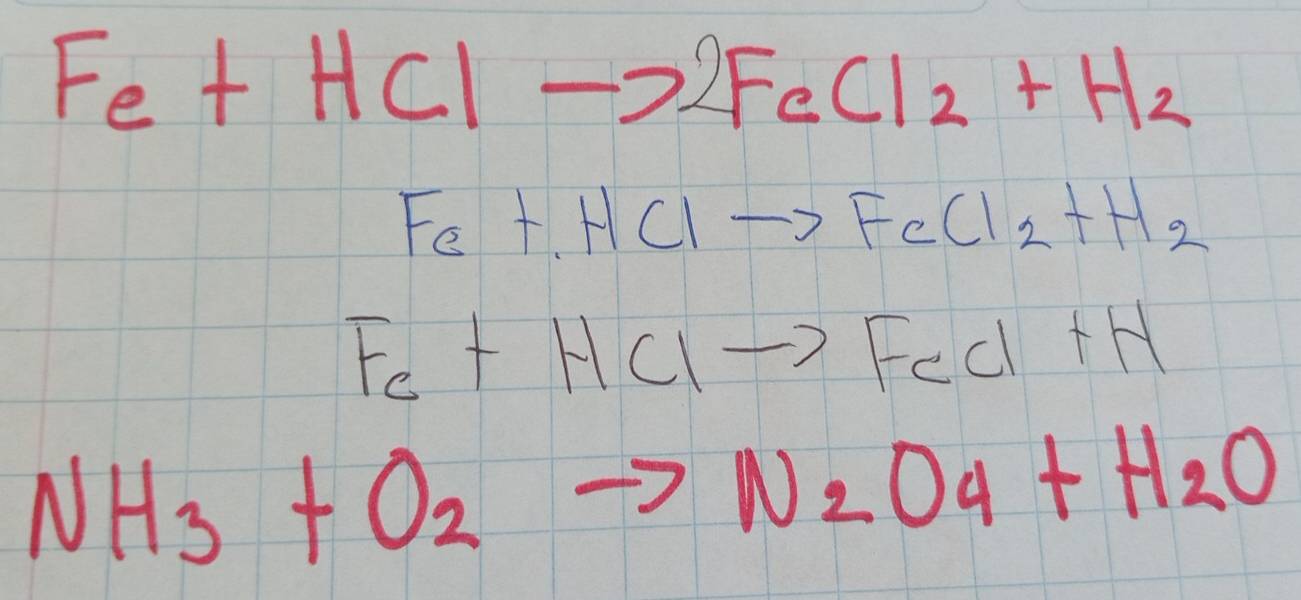 Fe + HCl → 2FeCl2 + H2
Fe + . HCl → FeCl2 + H2
Fe + HCl → FeCl + H
NH3 + O2 → N2O4 + H2O